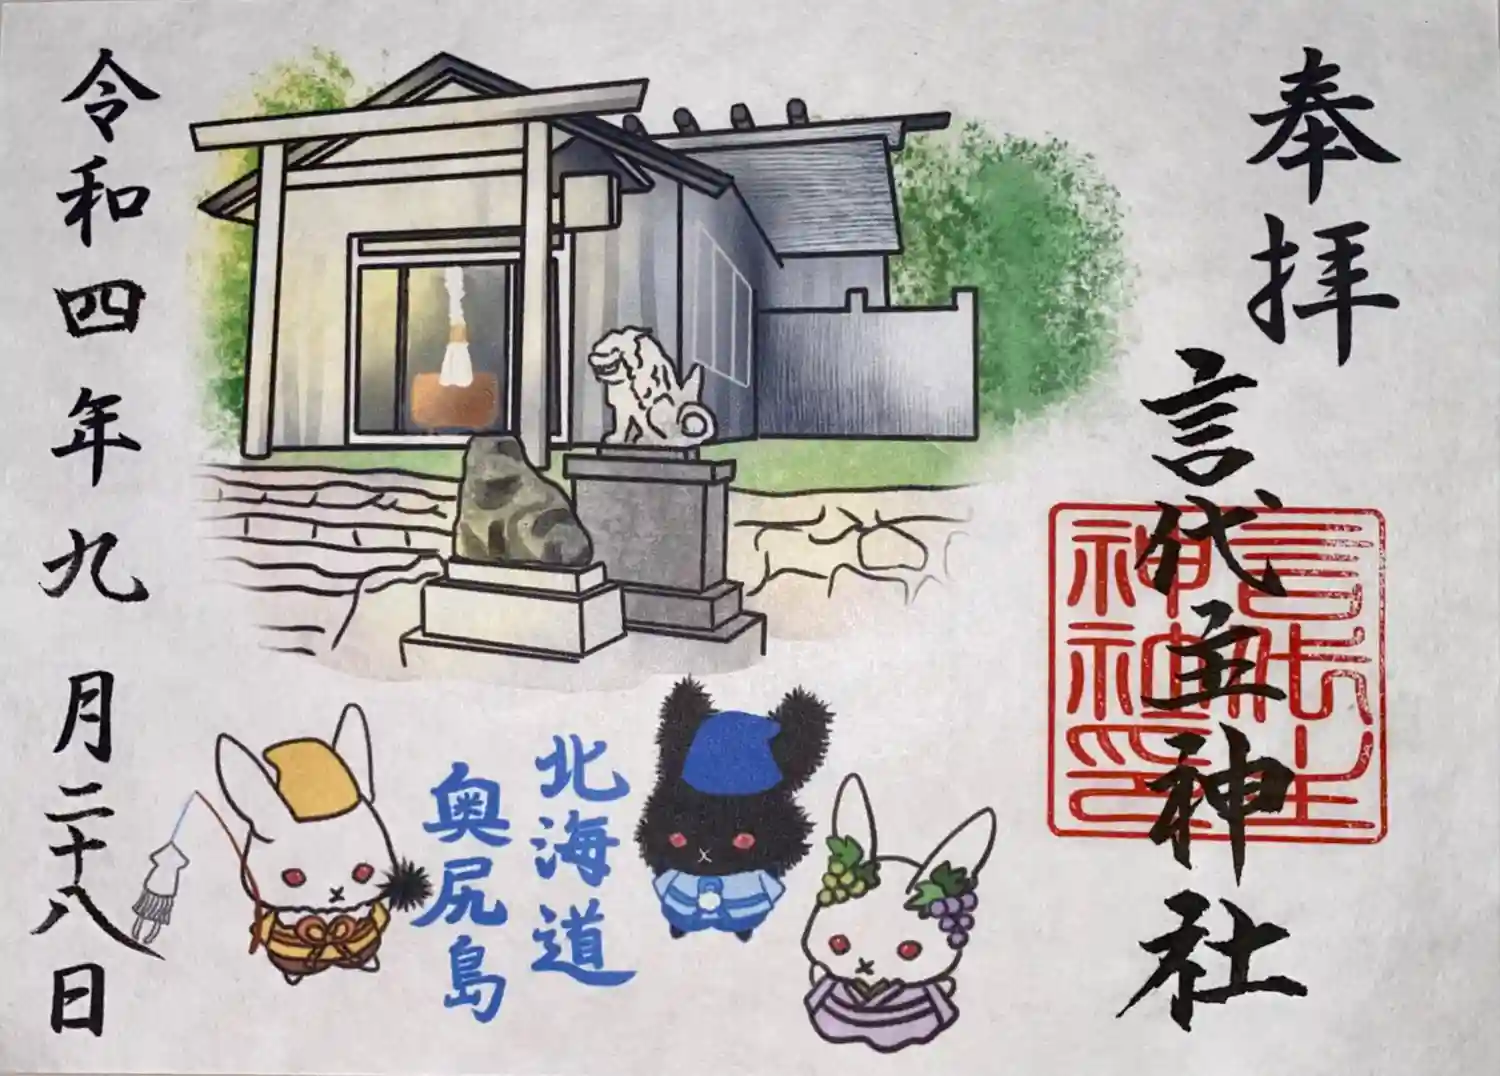 奉拝
言代主神社
言代主
神社神璽印
北海道
奥尻島
令和四年九月二十八日